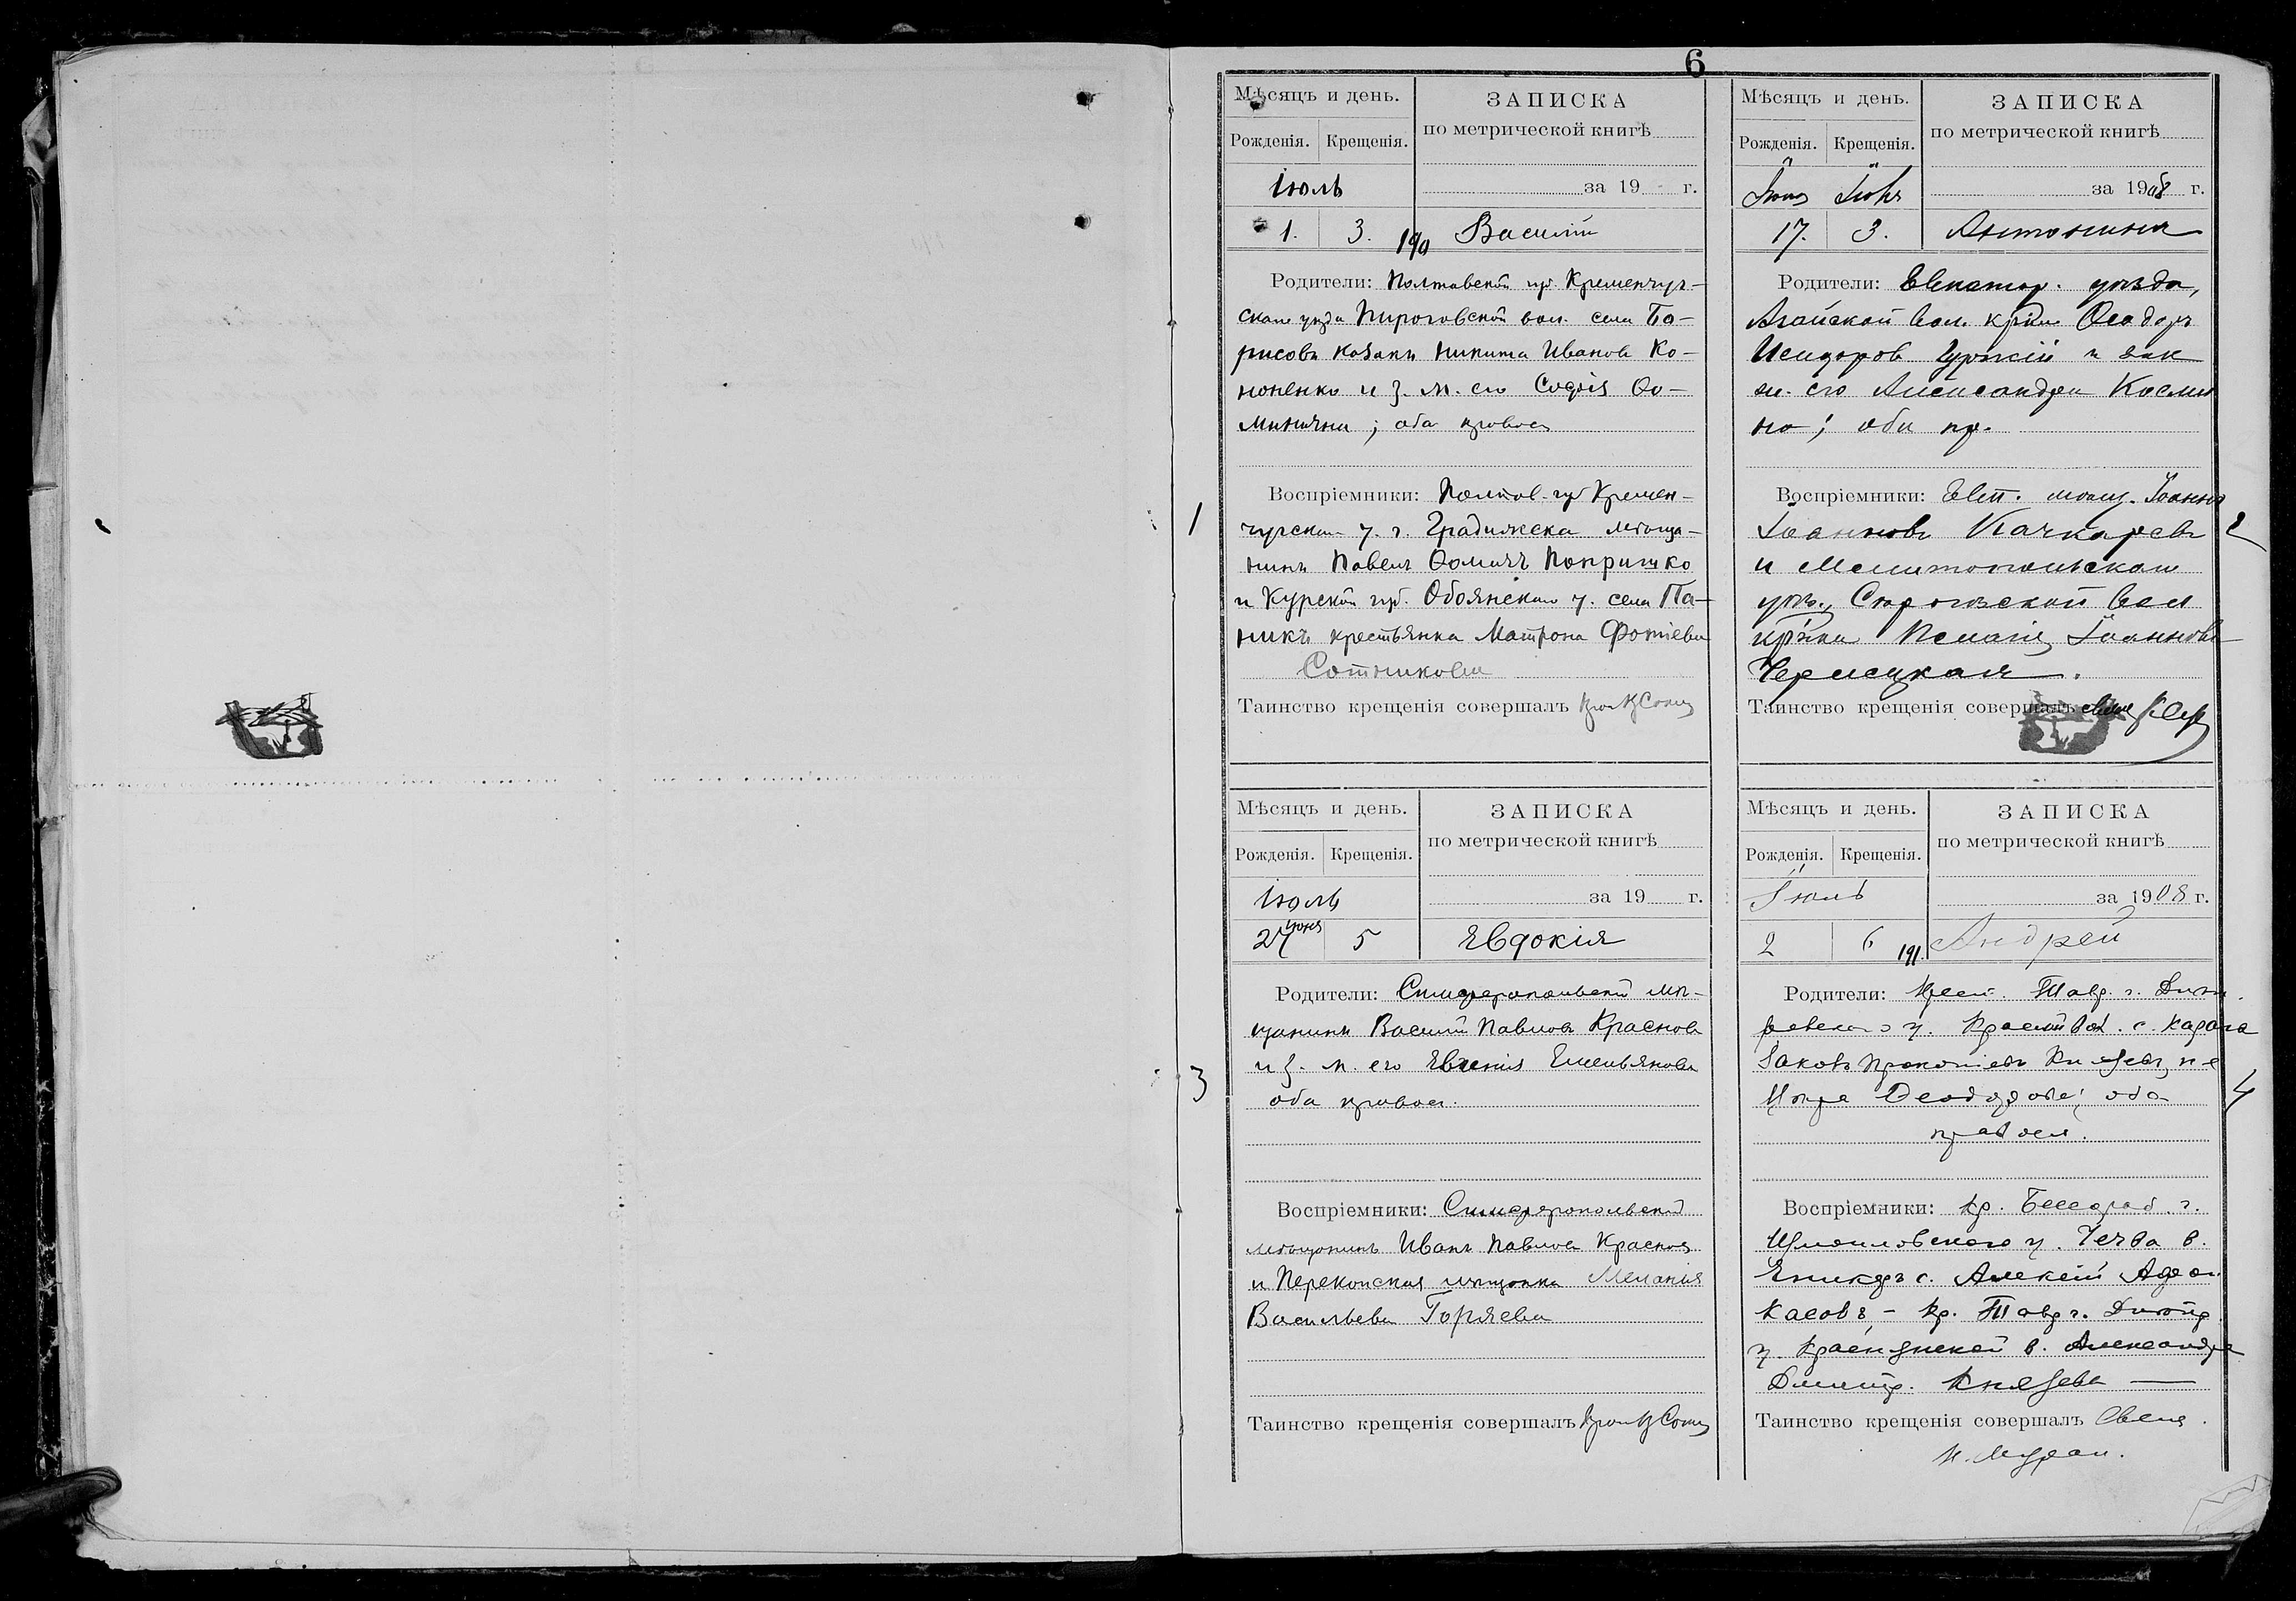 6
Мѣсяцъ и день.
Рожденія. Крещенія.
ЗАПИСКА
по метрической книгѣ
Іюль
за 19 г.
1. 3. Василій
Родители: Полтавской гу. Кременчуг-
скаго уѣзда Пироговской вол. села Бо-
рисовъ казакъ Никита Иванов Ко-
ноненко и з. ж. его Софія Ѳо-
минична; оба правос
1
Воспріемники: Полтав. губ Кремен-
чугскаго у. г. Градижска мѣща-
нинъ Павелъ Ѳомичъ Покришко
и Курской губ. Обоянскаго у. села Па-
никъ крестьянка Матрона Фотіева
Сотникова
Таинство крещенія совершалъ
Мѣсяцъ и день.
Рожденія. Крещенія.
ЗАПИСКА
по метрической книгѣ
за 1908 г.
17. 3. Антонина
Родители: Евпатор. уѣзда,
Агайской вол. кр-нъ Ѳеодоръ
Исидоров Гуржій и зак
ж. его Александра Косми
на; оба пр.
Воспріемники: Евп. мѣщ. Іоаннъ
Іоанновъ Качкаревъ
2
и Мелитопольскаго
уѣз., вол
Іоаннова
Таинство крещенія совершалъ
Мѣсяцъ и день.
Рожденія. Крещенія.
ЗАПИСКА
по метрической книгѣ
Іюль
за 19 г.
27 іюня 5 Евдокія
Родители: Симферопольскій мѣ-
щанинъ Василій Павлов Краснов
и з. ж. его Евгенія Емельянова
3
оба правос.
Воспріемники: Симферопольскій
мѣщанинъ Иванъ Павлов Краснов
и Перекопская мѣщанка Меланія
Васильева Горяева
Таинство крещенія совершалъ
Мѣсяцъ и день.
Рожденія. Крещенія.
ЗАПИСКА
по метрической книгѣ
Іюль
за 1908 г.
2 6 191. Андрей
Родители: Крест. Тавр. г. Днѣп.
ровскаго у. вол. с.
Іаковъ Прокопіевъ Князевъ,
Ѳеодорова; оба
4
правосл.
Воспріемники: кр. г.
Измаиловскаго у. в.
с. Алексій
кр. Тавр г. Днѣпр
у. в. Александра
Димитр. Князева —
Таинство крещенія совершалъ Свящ.